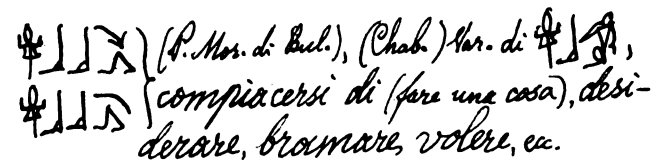 (P. Mor. di Bul.), (Chab.) Var. di ,
compiacersi di (fare una cosa), desi-
derare, bramare, volere, ecc.